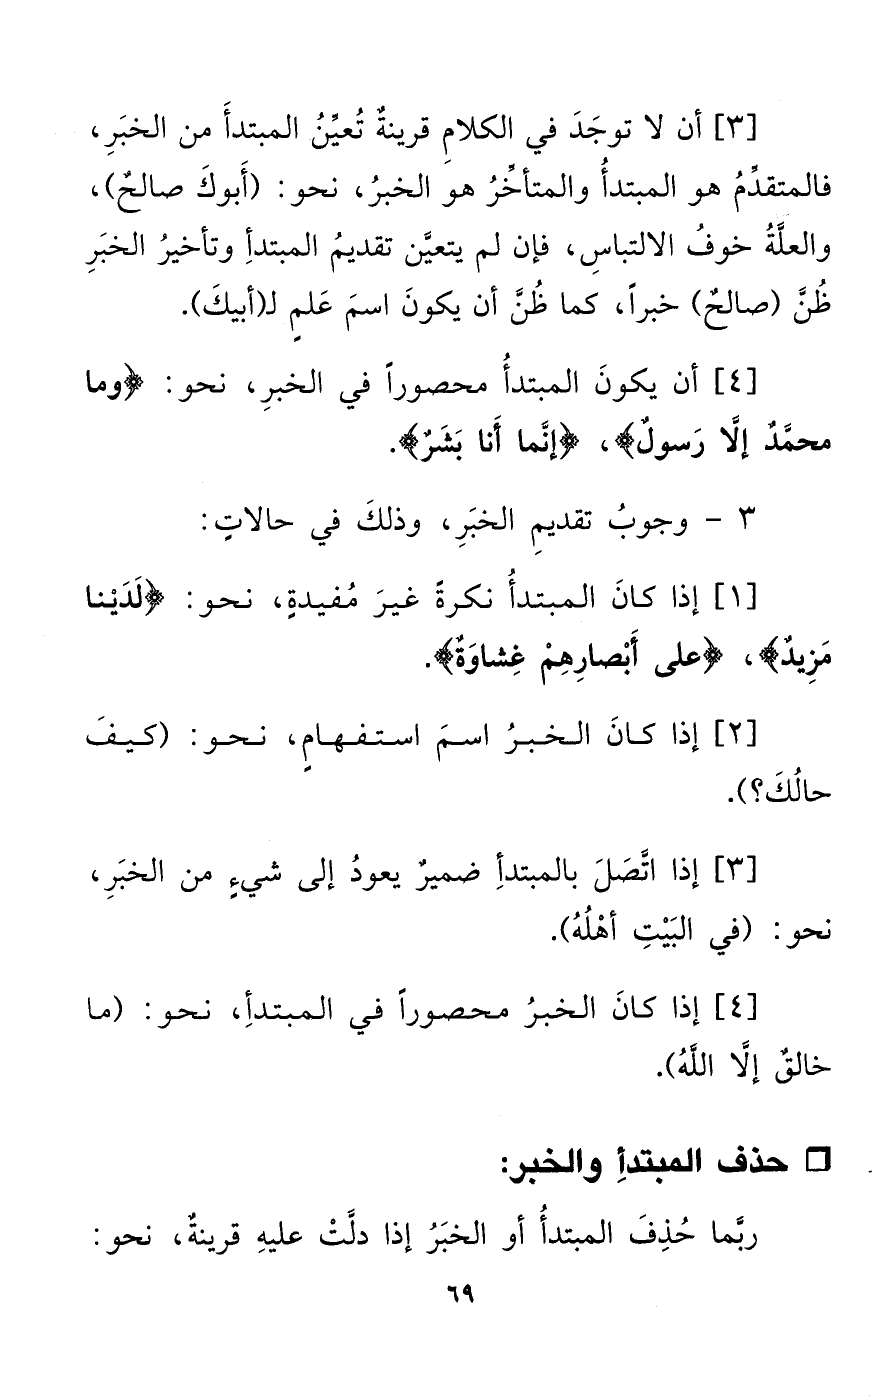 [٣] أن لا توجَدَ في الكلامِ قرينةٌ تُعيِّنُ المبتدأَ من الخبَرِ،
فالمتقدِّمُ هو المبتدأُ والمتأخِّرُ هو الخبرُ، نحو: (أَبوكَ صالحٌ)،
والعلَّةُ خوفُ الالتباسِ، فإن لم يتعيَّن تقديمُ المبتدأِ وتأخيرُ الخبَرِ
ظُنَّ (صالحٌ) خبراً، كما ظُنَّ أن يكونَ اسمَ عَلمٍ لـ(أبيكَ).
[٤] أن يكونَ المبتدأُ محصوراً في الخبرِ، نحو: ﴿وما
محمَّدٌ إلَّا رَسولٌ﴾، ﴿إنَّما أَنا بَشَرٌ﴾.
٣ - وجوبُ تقديمِ الخبَرِ، وذلكَ في حالاتٍ:
[١] إذا كانَ المبتدأُ نكرةً غيرَ مُفيدةٍ، نحو: ﴿لَدَيْنا
مَزِيدٌ﴾، ﴿على أَبْصارِهِمْ غِشاوَةٌ﴾.
[٢] إذا كانَ الخبرُ اسمَ استفهامٍ، نحو: (كيفَ
حالُكَ؟).
[٣] إذا اتَّصَلَ بالمبتدأِ ضميرٌ يعودُ إلى شيءٍ من الخبَرِ،
نحو: (في البَيْتِ أهْلُهُ).
[٤] إذا كانَ الخبرُ محصوراً في المبتدأِ، نحو: (ما
خالقٌ إلَّا اللَّهُ).
□ حذف المبتدأِ والخبر:
ربَّما حُذِفَ المبتدأُ أو الخبَرُ إذا دلَّتْ عليهِ قرينةٌ، نحو:
٦٩